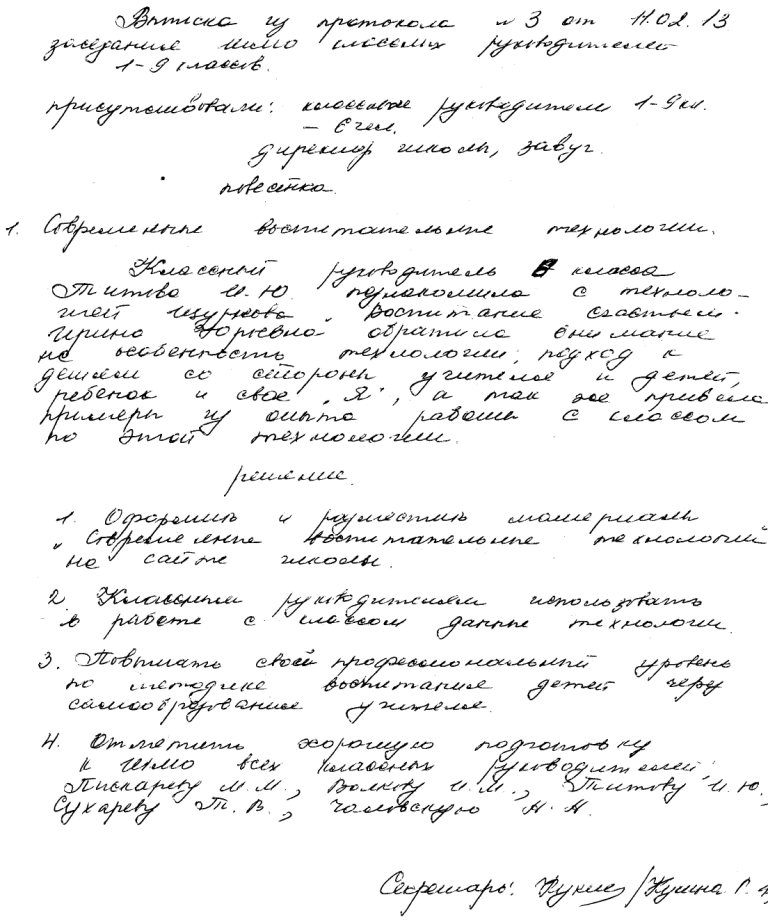 Выписка из протокола № 3 от 11.02.13
заседания шмо классных руководителей
1-9 классов.
присутствовали: классные руководители 1-9 кл.
– 6 чел.
директор школы, завуч.
повестка.
1. Современные воспитательные технологии.
Классный руководитель 6 класса
Титова И.Ю. познакомила с техноло-
гией Щуркова „Воспитание счастьем.
Ирина Юрьевна обратила внимание
на особенность технологии, подход к
детям со стороны учителя и детей,
ребенок и свое „Я", а так же привела
примеры из опыта работы с классом
по этой технологии.
решение.
1. Оформить и разместить материалы
„Современные воспитательные технологии"
на сайте школы.
2. Классным руководителям использовать
в работе с классом данные технологии.
3. Повышать свой профессиональный уровень
по методике воспитания детей через
самообразование учителя.
4. Отметить хорошую подготовку
к шмо всех классных руководителей:
Пискареву М.М., Волкову И.М., Титову И.Ю.,
Сухареву Т.В., Чаловскую Н.Н.
Секретарь: /Кушна Г.